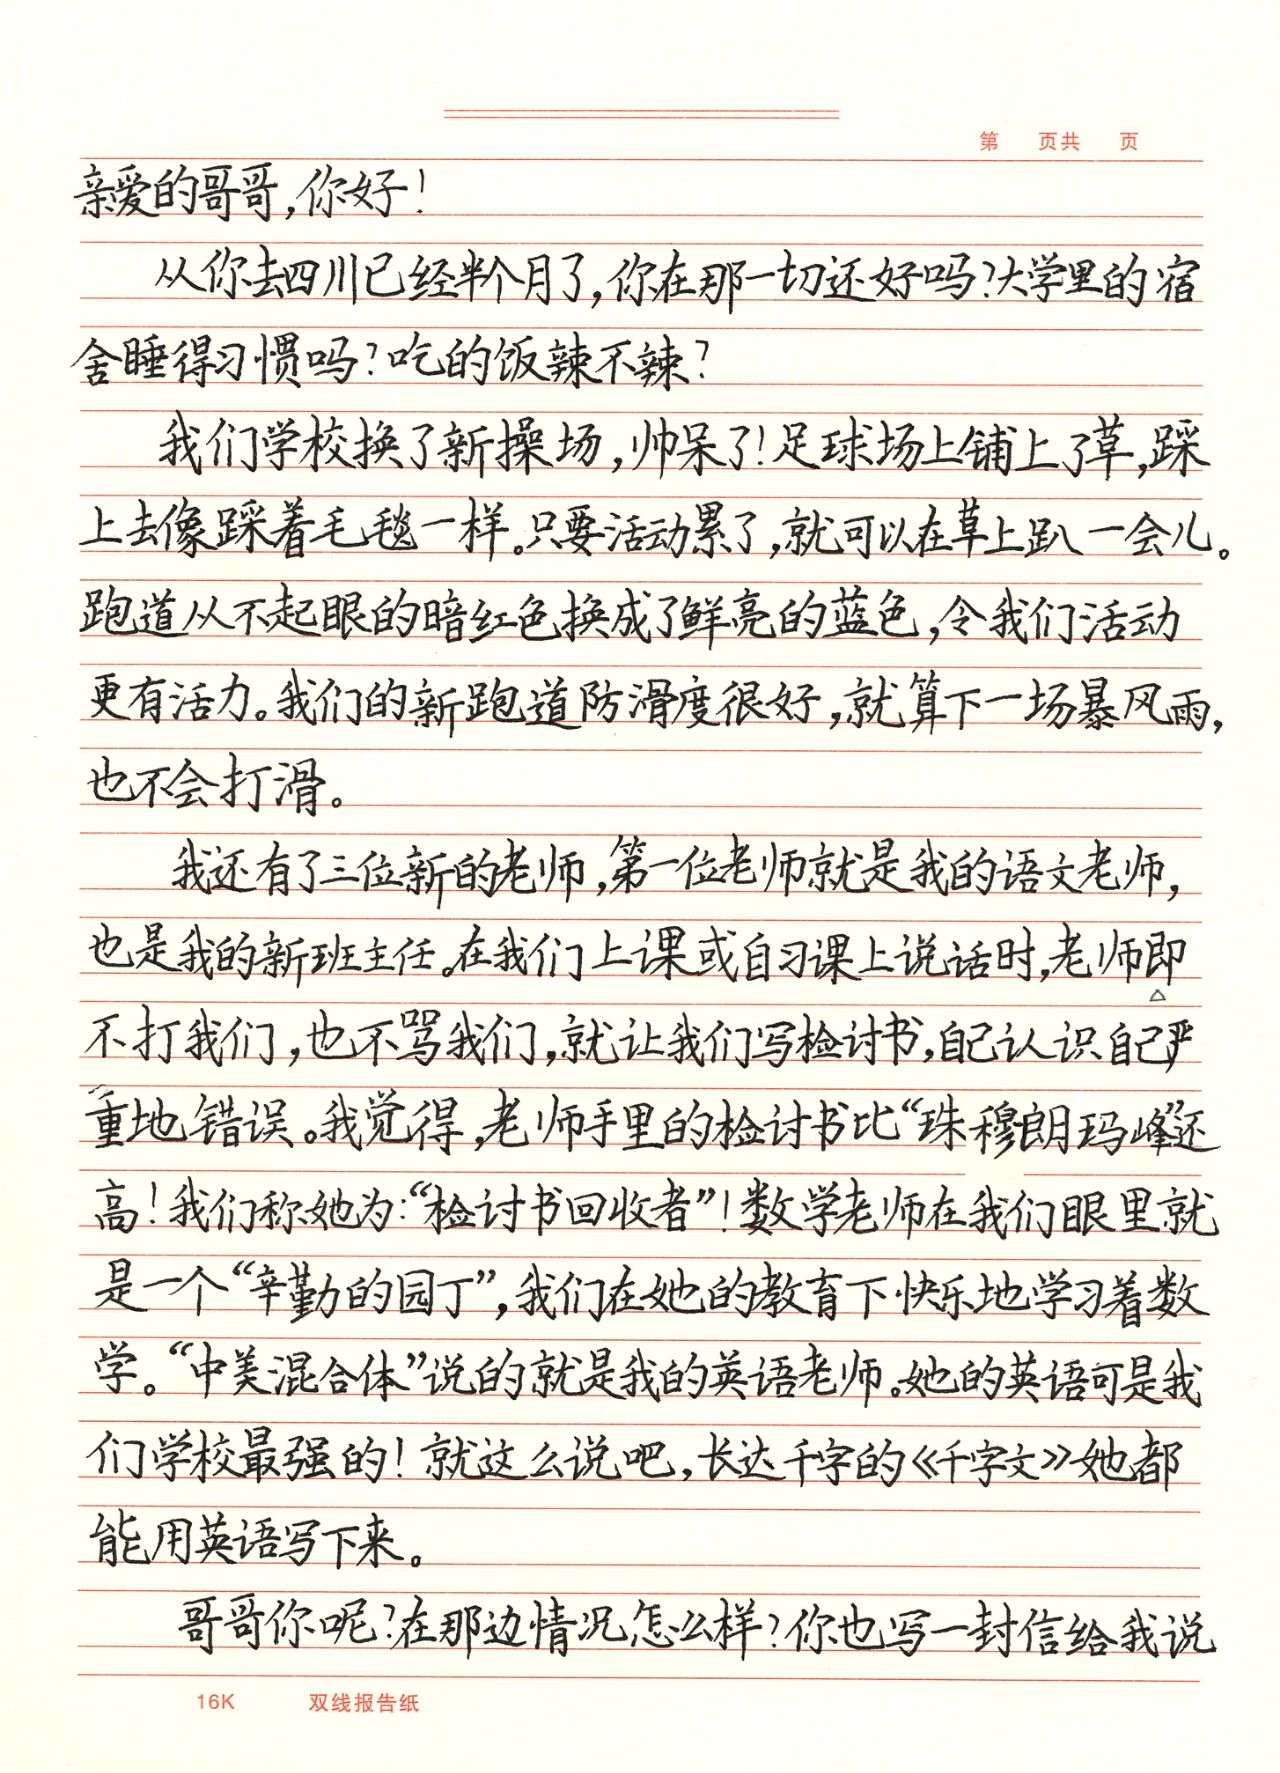 第 页共 页
亲爱的哥哥,你好!
从你去四川已经半个月了,你在那一切还好吗?大学里的宿
舍睡得习惯吗?吃的饭辣不辣?
我们学校换了新操场,帅呆了!足球场上铺上了草,踩
上去像踩着毛毯一样。只要活动累了,就可以在草上趴一会儿。
跑道从不起眼的暗红色换成了鲜亮的蓝色,令我们活动
更有活力。我们的新跑道防滑度很好,就算下一场暴风雨,
也不会打滑。
我还有了三位新的老师,第一位老师就是我的语文老师,
也是我的新班主任。在我们上课或自习课上说话时,老师即
不打我们,也不骂我们,就让我们写检讨书,自己认识自己严
重地错误。我觉得,老师手里的检讨书比“珠穆朗玛峰”还
高!我们称她为:“检讨书回收者”!数学老师在我们眼里就
是一个“辛勤的园丁”,我们在她的教育下快乐地学习着数
学。“中美混合体”说的就是我的英语老师。她的英语可是我
们学校最强的!就这么说吧,长达千字的《千字文》她都
能用英语写下来。
哥哥你呢?在那边情况怎么样?你也写一封信给我说
16K 双线报告纸